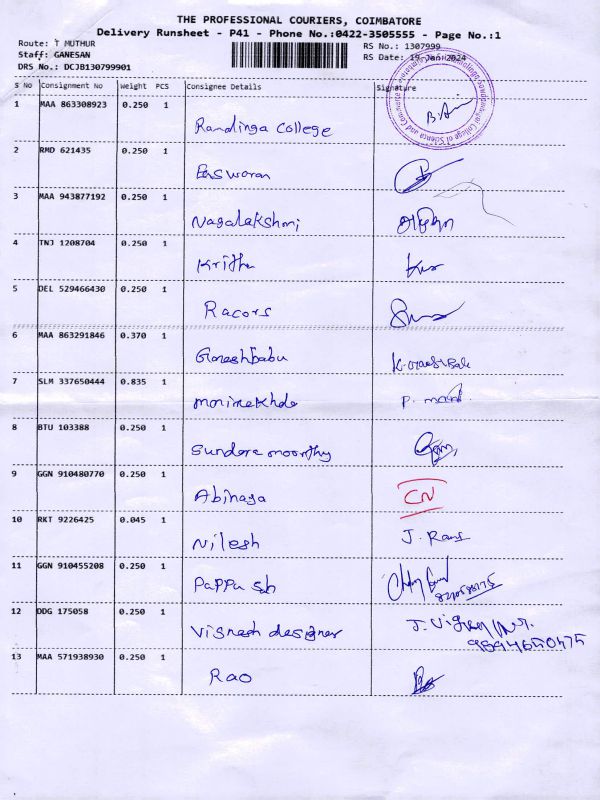 THE PROFESSIONAL COURIERS, COIMBATORE
Delivery Runsheet - P41 - Phone No.:0422-3505555 - Page No.:1
Route: T MUTHUR
RS No.: 1307999
Staff: GANESAN
RS Date: 19 Jan 2024
DRS No.: DCJB130799901
S No Consignment No Weight PCS Consignee Details Signature
1 MAA 863308923 0.250 1
Randinga College
2 RMD 621435 0.250 1
Easwaran
3 MAA 943877192 0.250 1
Nagalakshmi
4 TNJ 1208704 0.250 1
Krithu
5 DEL 529466430 0.250 1
Racors
6 MAA 863291846 0.370 1
Ganeshbabu
7 SLM 337650444 0.835 1
P. mani
8 BTU 103388 0.250 1
Sundara moorthy
9 GGN 910480770 0.250 1
Abinaya CN
10 RKT 9226425 0.045 1
Nilesh J. Rani
11 GGN 910455208 0.250 1
Pappu Sah
12 DDG 175058 0.250 1
Visnesh designer
9894650475
13 MAA 571938930 0.250 1
Rao